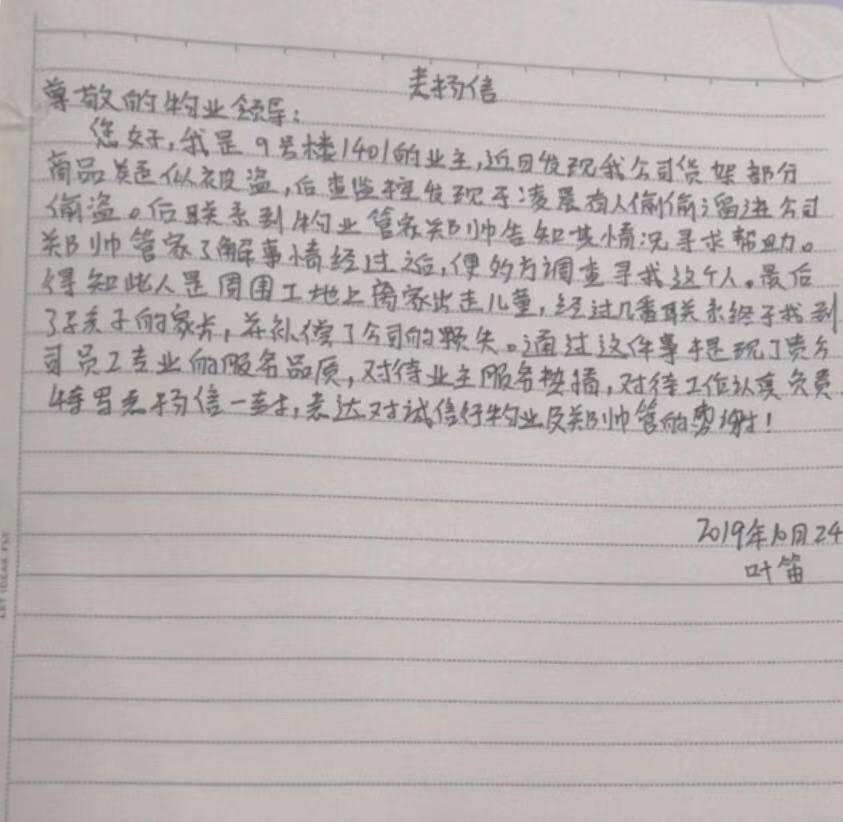 表扬信
尊敬的物业领导：
您好，我是9号楼1401的业主，近日发现我公司货架部分
商品疑似被盗，后查监控发现于凌晨有人偷偷溜进公司
偷盗。后联系到物业管家郑帅告知其情况寻求帮助。
郑帅管家了解事情经过之后，便多方调查寻找这个人。最后
得知此人是周围工地上离家出走儿童，经过几番联系终于找到
了孩子的家长，并补偿了公司的损失。通过这件事提现了贵公
司员工专业的服务品质，对待业主服务热情，对待工作认真负责
特写表扬信一封，表达对诚信行物业及郑帅管的感谢！
2019年10月24
叶笛